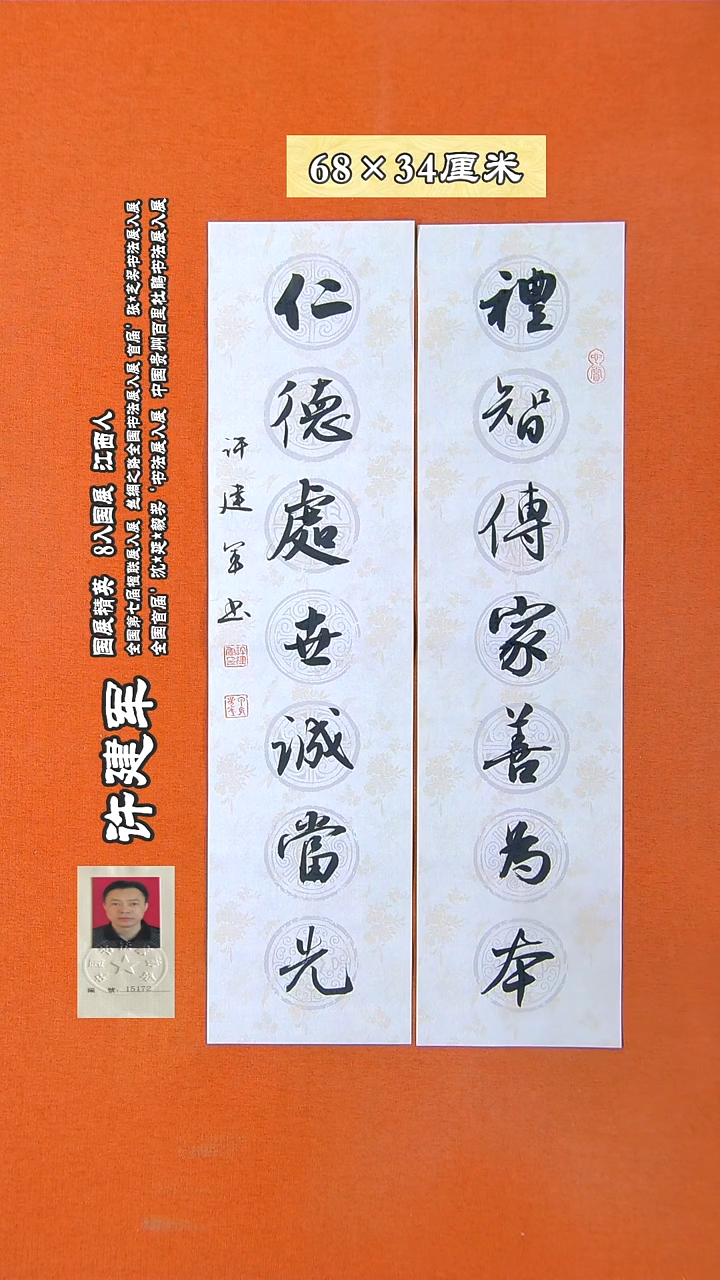 68×34厘米
禮智傳家善為本
仁德處世誠當先
许建军书
国展精英 8入国展 江西人
全国第七届楹联展入展 丝绸之路全国书法展入展 首届'张★芝奖书法展入展
全国首届'沈★延★毅奖'书法展入展 中国贵州百里杜鹃书法展入展
许建军
编 号: 15172